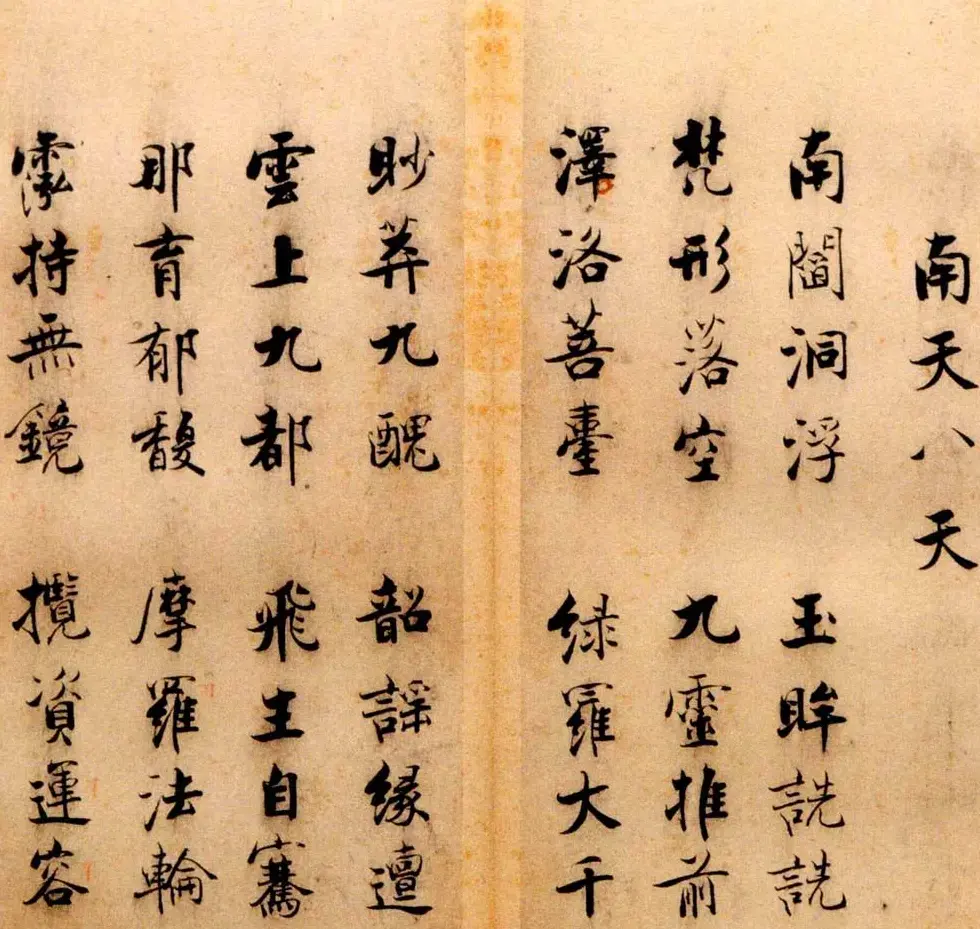 南天八天
南閻洞浮 玉眸詵詵
梵形落空 九靈推前
澤洛菩臺 緑羅大千
眇莽九醜 韶謡縁邅
雲上九都 飛生自騫
那育郁馥 摩羅法輪
霐持無鏡 攬資運容